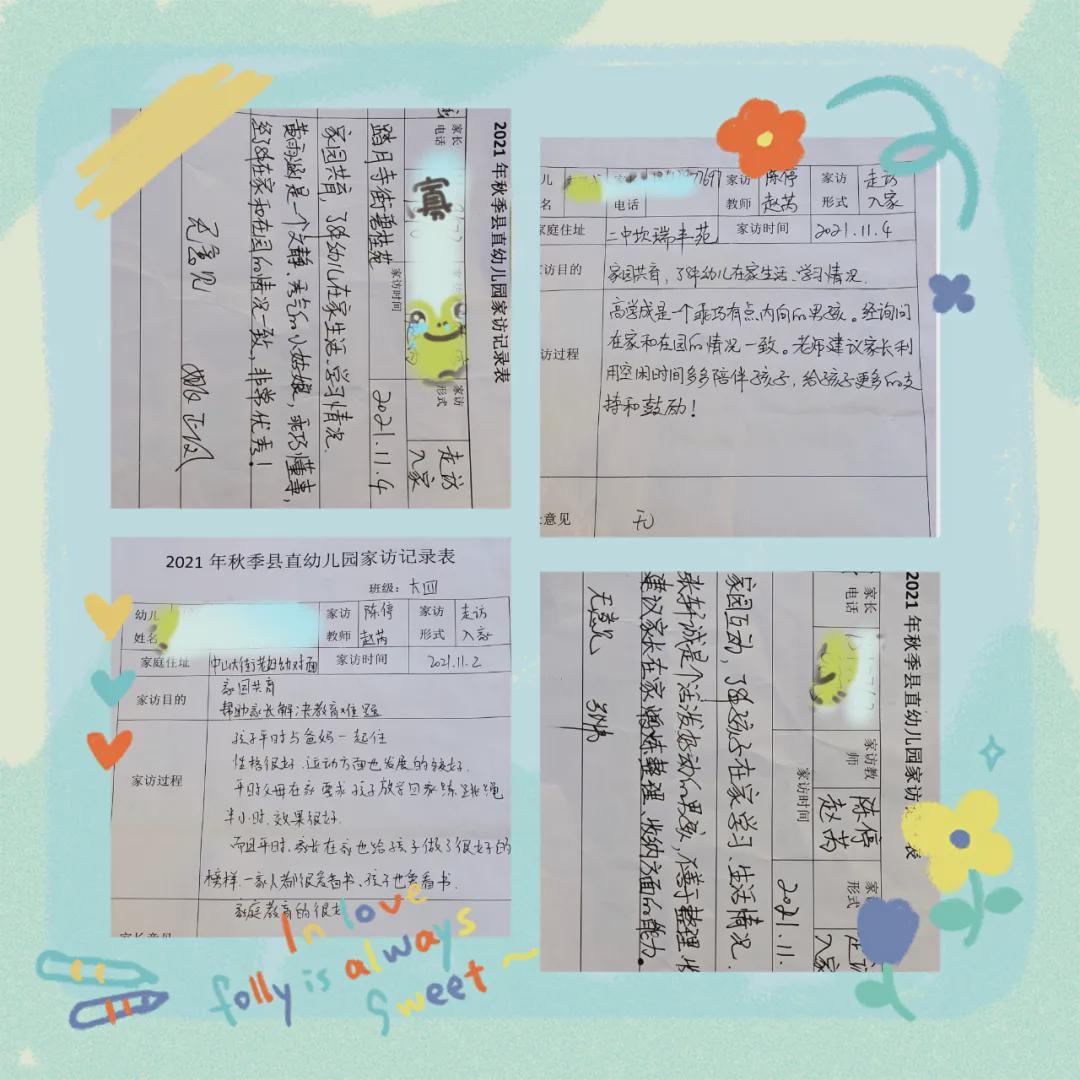 2021年秋季县直幼儿园家访记录表
家长
电话
家访
形式
走访
入家
踏月寺街碧桂苑
家访时间
2021.11.4
家园共育，了解幼儿在家生活、学习情况.
黄雨涵是一个文静、秀气的小姑娘，乖巧懂事，
经了解在家和在园的情况一致，非常优秀！
无意见
儿
名
电话
家访
教师
陈停
赵芮
家访
形式
走访
入家
家庭住址
二中坎瑞丰苑
家访时间
2021.11.4
访目的
家园共育，了解幼儿在家生活、学习情况.
访过程
高学成是一个乖巧有点内向的男孩。经询问
在家和在园的情况一致。老师建议家长利
用空闲时间多多陪伴孩子，给孩子更多的支
持和鼓励！
意见
无
2021年秋季县直幼儿园家访记录表
班级：大四
幼儿
姓名
家访
教师
陈停
赵芮
家访
形式
走访
入家
家庭住址
中山大街老妇幼对面
家访时间
2021.11.2
家访目的
家园共育
帮助家长解决教育难题
家访过程
孩子平时与爸妈一起住
性格很好.运动方面也发展的较好.
平时父母在家要求孩子放学回家练跳绳
半小时.效果很好.
而且平时.家长在家也给孩子做了很好的
榜样.一家人都很爱看书、孩子也爱看书.
家庭教育的很
家长意见
2021年秋季县直幼儿园家访
表
家长
电话
家访教
师
陈停
赵芮
家
形式
走访
入家
家访时间
2021.11.
家园互动，了解孩子在家学习、生活情况.
张轩诚是个活泼好动的男孩，不善于整理.收
建议家长在家训练整理、收纳方面的能力。
无意见
In love
folly is always
sweet